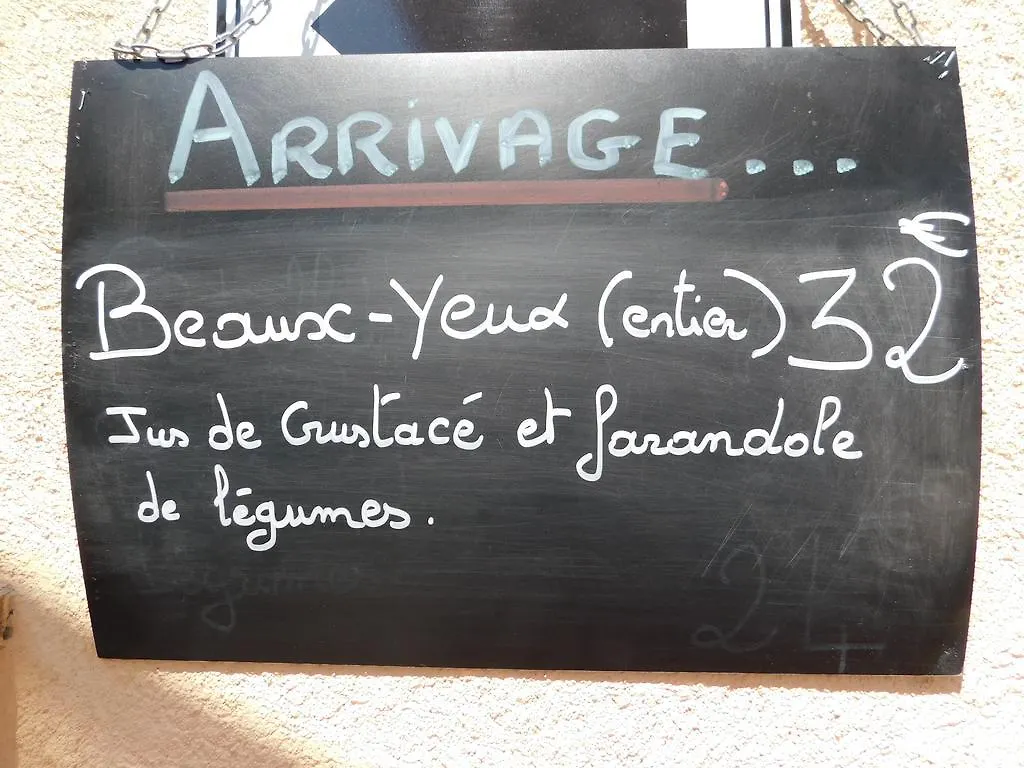 ARRIVAGE...
Beaux-Yeux (entier) 32€
Jus de Crustacé et farandole
de légumes.
24